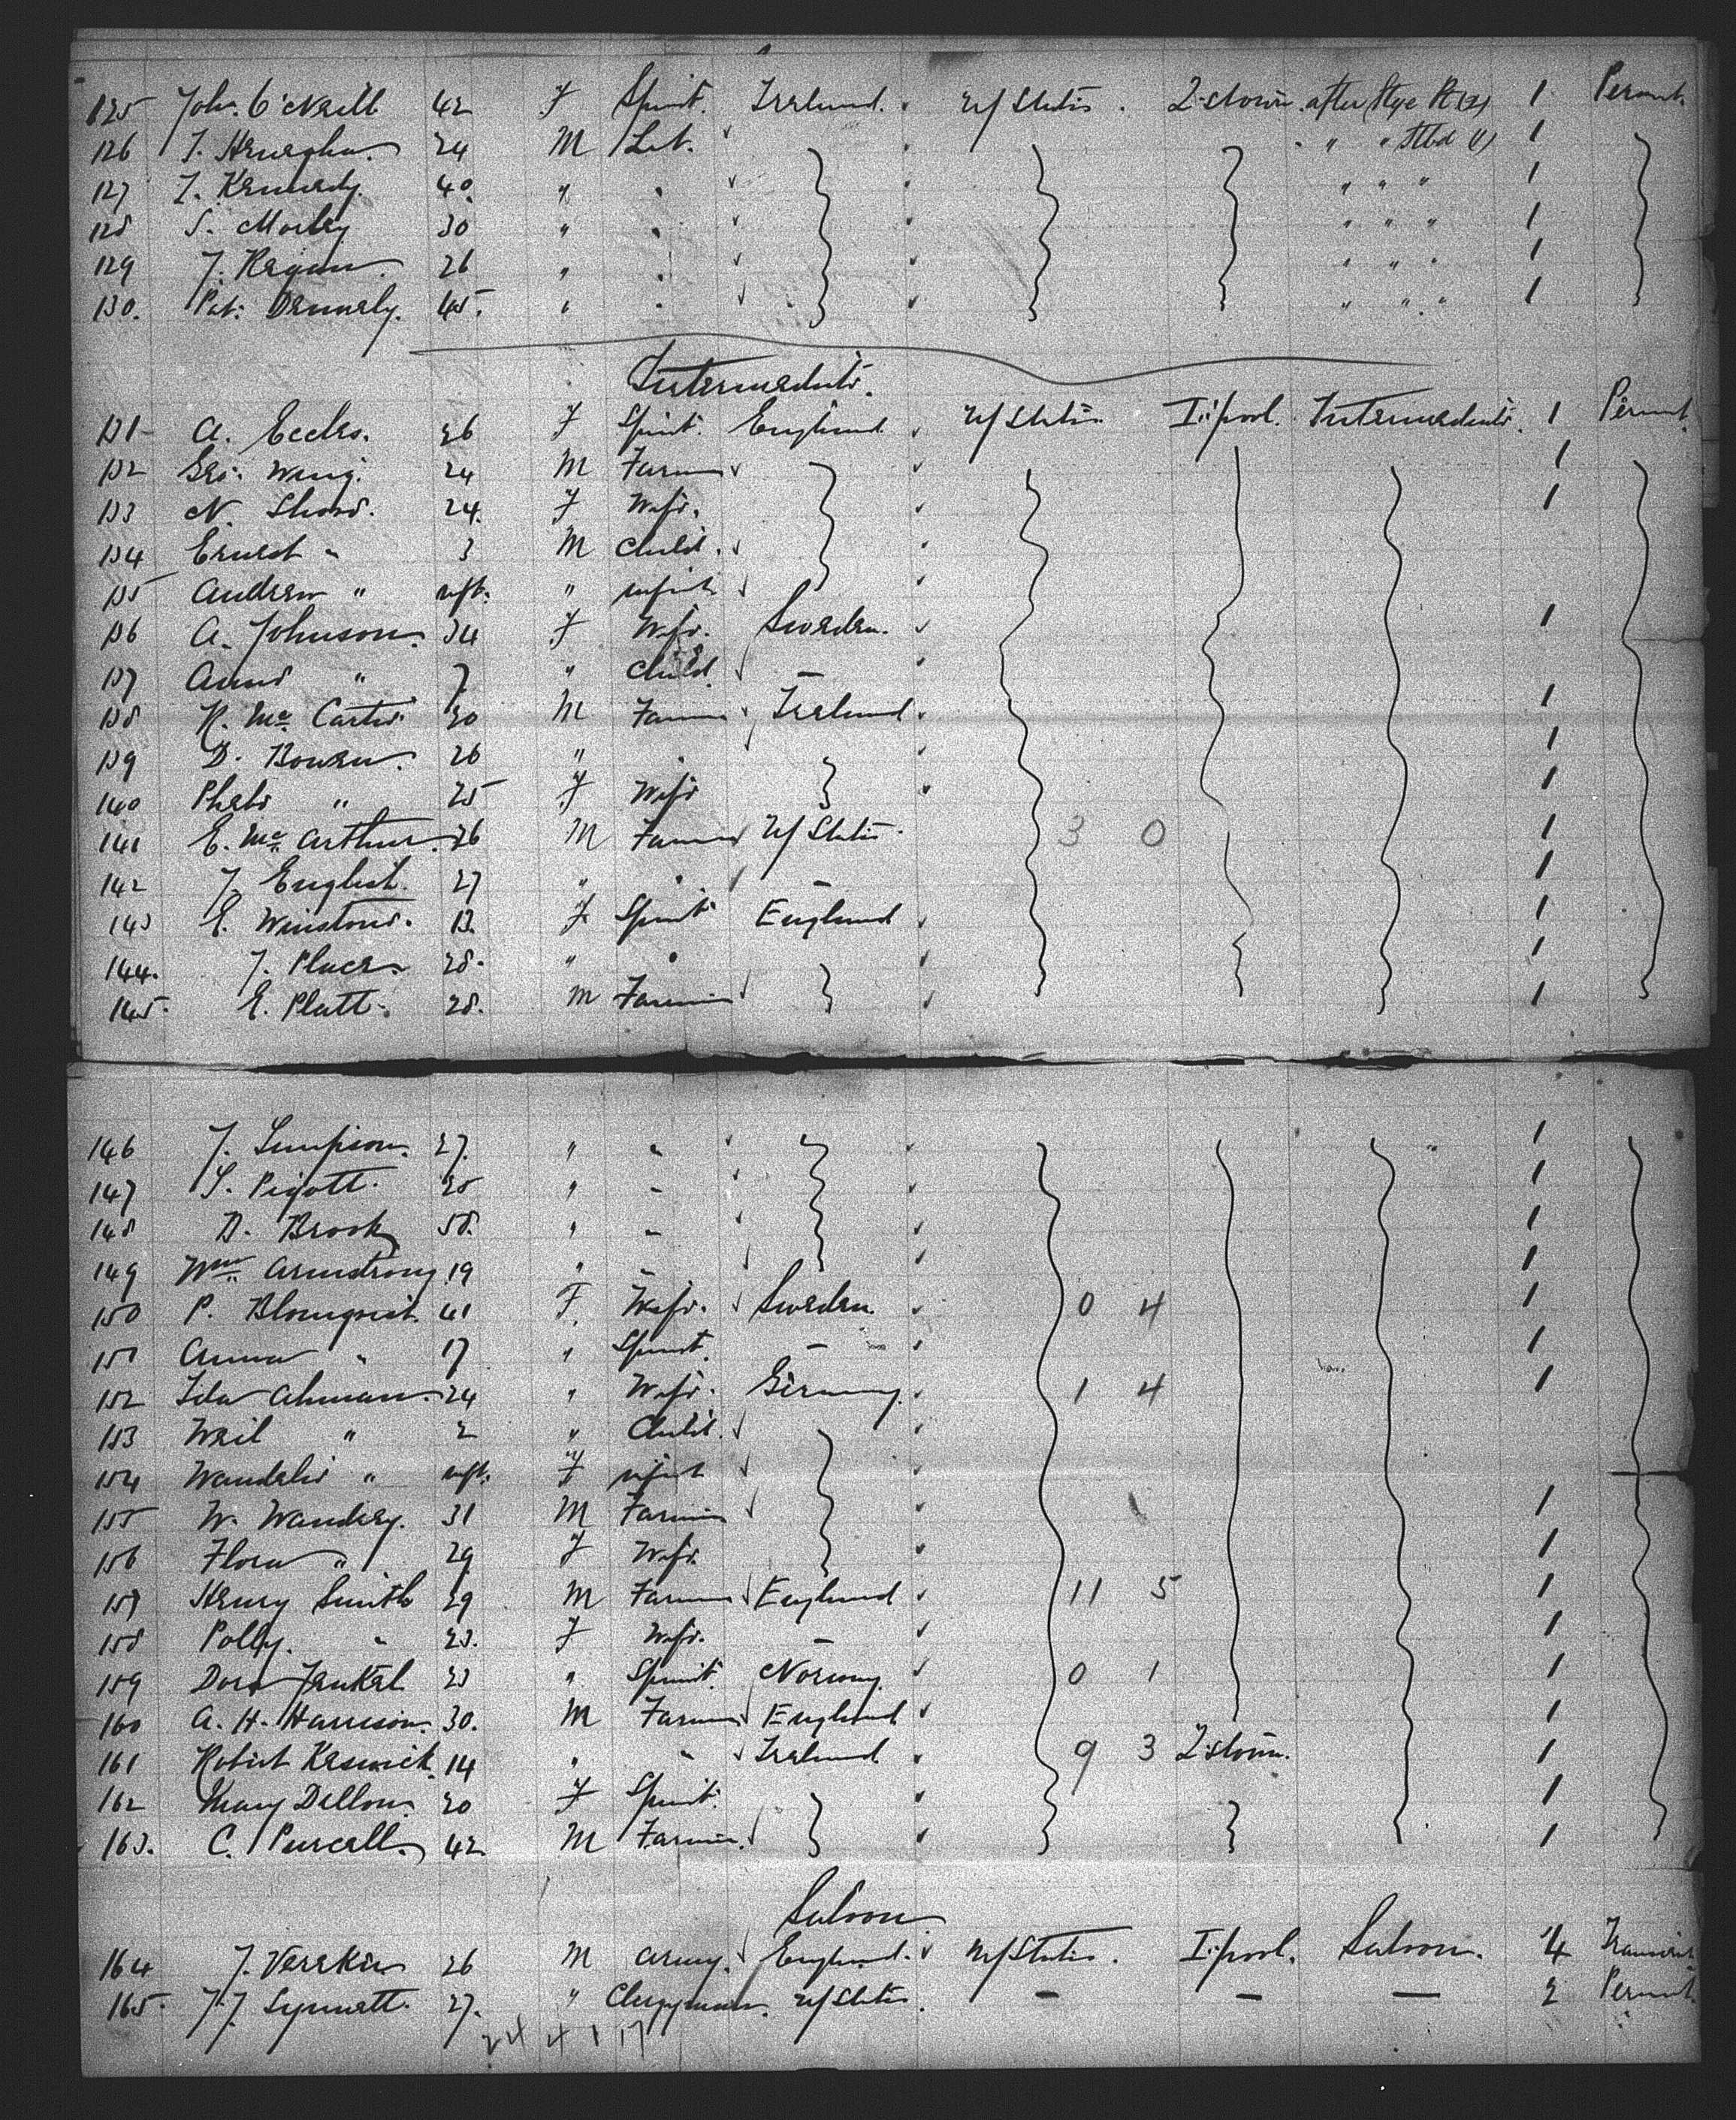 125 John O'Neill 42 F Spinst. Ireland. U/States. Q:stown. after Stge Pt (2) 1 Permt.
126 J. 24 M Lab. " " Stbd (1) 1
127 J. Kennedy. 40. " " " " " 1
128 S. Morley 30 " " " " " 1
129 J. Regan. 26 " " " " " 1
130. Pat: Dennely. 45. " " " " " 1
Intermediate.
131 A. Eccles. 26 F Spinst. England. U/States. L:pool. Intermediate. 1 Permt.
132 Geo: Wing. 24 M Farmer 1
133 N. Shore. 24. F Wife. 1
134 Ernest " 3 M Child.
135 Andrew " inft. " infant
136 A. Johnson. 34 F Wife. Sweden. 1
137 Anne " 7 " Child. —
138 R. Mc Carter 30 M Farmer Ireland 1
139 D. Bowen. 26 " " 1
140 Phebe " 25 F Wife 1
141 E. Mc Arthur. 26 M Farmer U/States. 3 0 1
142 J. English. 27 " " — 1
143 E. Winstone. 13. F Spinst England 1
144. J. Place. 28. " " 1
145. E. Platt. 28. M Farmer 1
146 J. Simpson. 27. " " " 1
147 S. Pigott. 25 " " 1
148 D. Brook 58. " " 1
149 Wm Armstrong 19 " " 1
150 P. Blomqvist. 41 F. Wife. Sweden. 0 4 1
151 Anna " 17 " Spinst. — 1
152 Ida Ahman. 24 " Wife. Germany. 1 4 1
153 " 2 " Child.
154 " inft. F infant
155 W. Wandrey. 31 M Farmer 1
156 Flora " 29 F Wife. 1
157 Henry Smith 29 M Farmer England 11 5 1
158 Polly. " 23. F Wife. — 1
159 Dora 23 " Spinst. Norway. 0 1 1
160 A. H. Harrison. 30. M Farmer England 1
161 Robert Keswick. 14 " " Ireland. 9 3 Q:stown. 1
162 Mary Dillon. 20 F Spinst. 1
163. C. Purcell. 42. M Farmer. 1
Saloon
164 J. 26 M Army. England. U/States. L:pool. Saloon. 4 Transient
165. J. J. 27. " Clergyman. U/States. — — — 2 Permt.
24 4 1 17